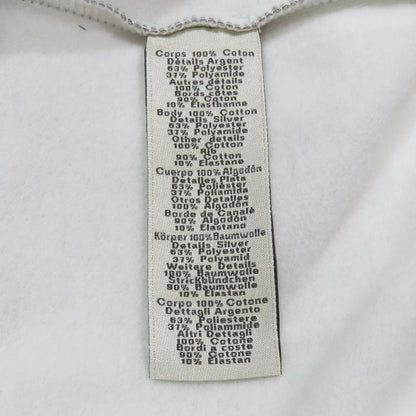 Corps 100% Coton
Détails Argent
63% Polyester
37% Polyamide
Autres détails
100% Coton
Bords côtes
90% Coton
10% Elasthanne
Body 100% Cotton
Details Silver
63% Polyester
37% Polyamide
Other details
100% Cotton
Rib
90% Cotton
10% Elastane
Cuerpo 100% Algodón
Detalles Plata
63% Poliéster
37% Poliamida
Otros Detalles
100% Algodón
Borde de Canalé
90% Algodón
10% Elastano
Körper 100% Baumwolle
Details Silver
63% Polyester
37% Polyamid
Weitere Details
100% Baumwolle
Strickbündchen
90% Baumwolle
10% Elastan
Corpo 100% Cotone
Dettagli Argento
63% Poliestere
37% Poliammide
Altri Dettagli
100% Cotone
Bordi a coste
90% Cotone
10% Elastan